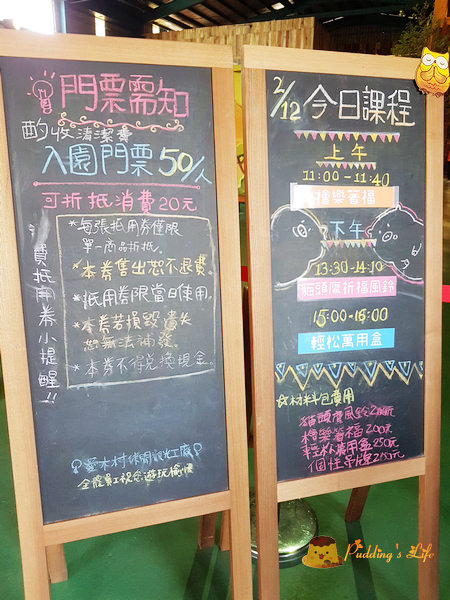 門票需知
酌收清潔費
入園門票50/人
可折抵消費20元
消費抵用券小提醒!!
*每張抵用券僅限
單一商品折抵.
*本券售出恕不退費.
*抵用券限當日使用.
*本券若損毀遺失
恕無法補發.
*本券不得兌換現金.
愛木村休閒觀光工廠
全體員工祝您遊玩愉快
2/12 今日課程
上午
11:00-11:40
檜樂箸福
下午
13:30-14:10
貓頭鷹祈福風鈴
15:00-16:00
輕松萬用盒
材料包費用
貓頭鷹風鈴
檜樂箸福 200元
輕松萬用盒 250元
個性吊牌 250元
Pudding's Life